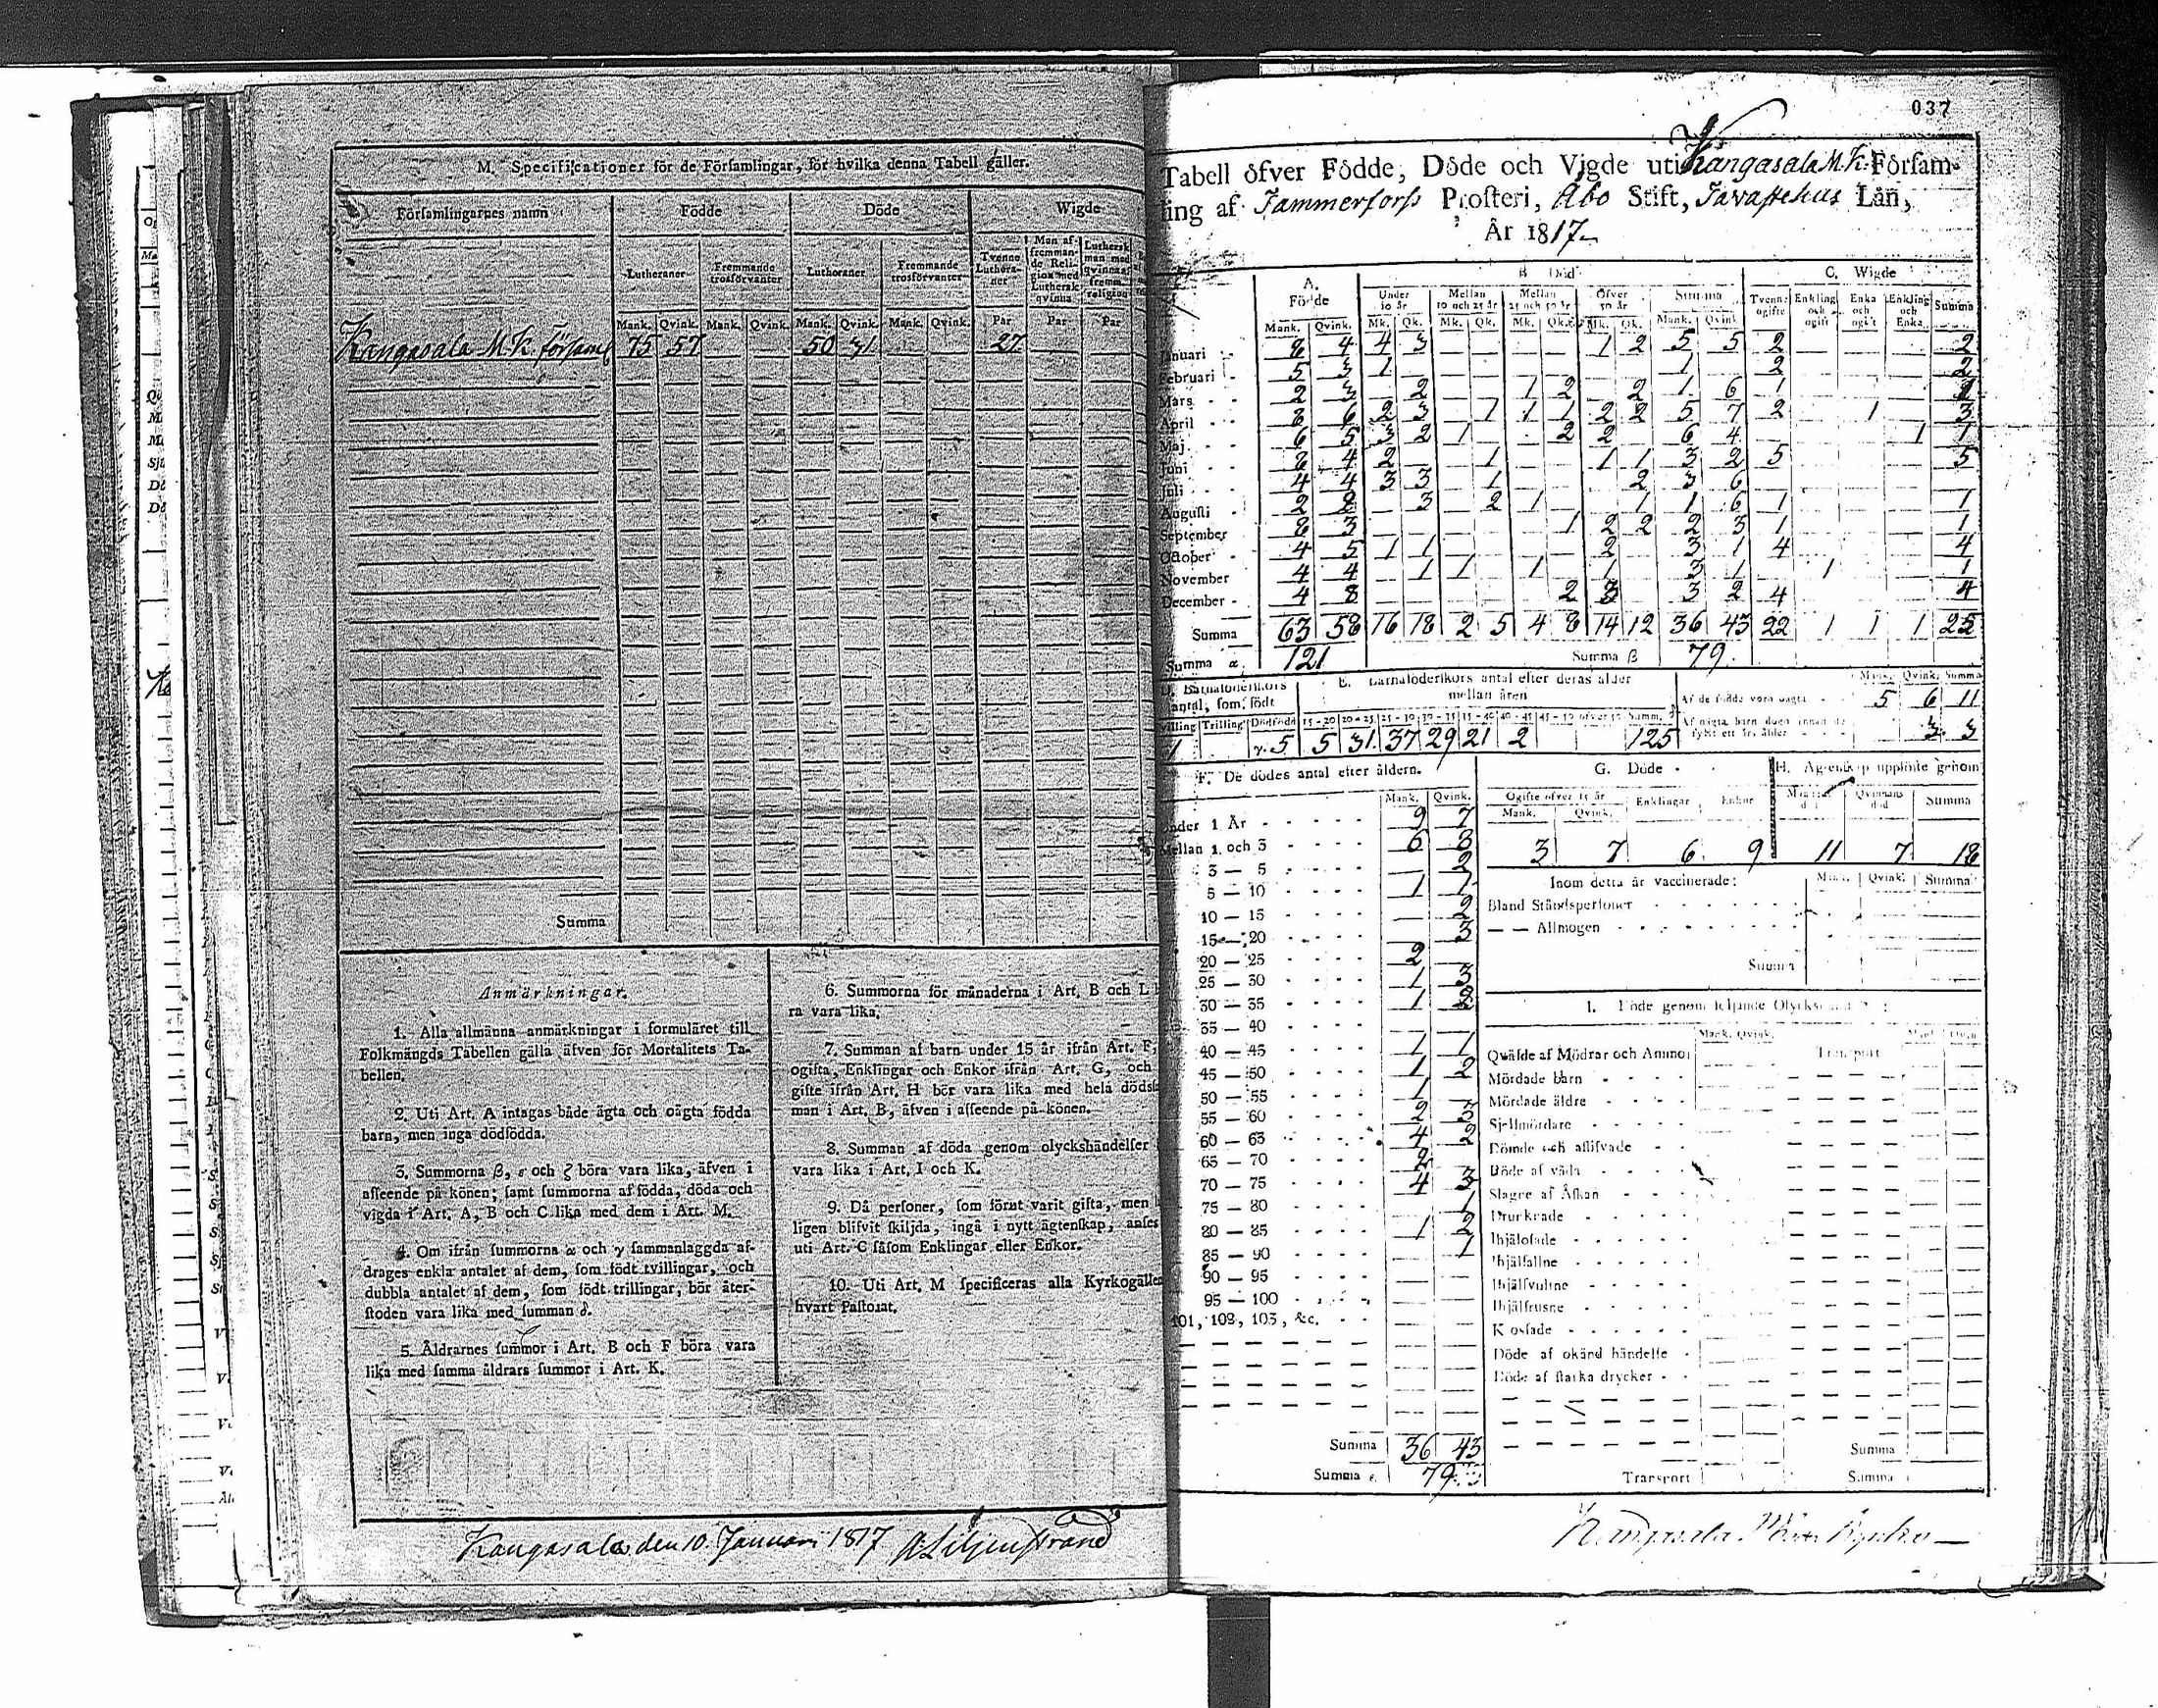 037
M. Specificationer för de Församlingar, för hvilka denna Tabell gäller.
Församlingarnes namn Födde Döde Wigde
Lutheraner Fremmande trosförvanter Lutheraner Fremmande trosförvanter Tvenne Lutheraner Man af fremmande Religion med Luthersk qvinna Luthersk man med qvinna af fremm. religion
Mank. Qvink. Mank. Qvink. Mank. Qvink. Mank. Qvink. Par Par Par
Kangasala M.K. församl 75 57 50 31 27
Summa
Anmärkningar.
1. Alla allmänna anmärkningar i formuläret till
Folkmängds Tabellen gälla äfven för Mortalitets Ta-
bellen.
2. Uti Art. A intagas både ägta och oägta födda
barn, men inga dödfödda.
3. Summorna β, ε och ζ böra vara lika, äfven i
afseende på könen; samt summorna af födda, döda och
vigda i Art. A, B och C lika med dem i Art. M.
4. Om ifrån summorna α och γ sammanlaggda af-
drages enkla antalet af dem, som födt tvillingar, och
dubbla antalet af dem, som födt trillingar, bör åter-
stoden vara lika med summan δ.
5. Åldrarnes summor i Art. B och F böra vara
lika med samma åldrars summor i Art. K.
6. Summorna för månaderna i Art. B och L
ra vara lika.
7. Summan af barn under 15 år ifrån Art. F,
ogifta, Enklingar och Enkor ifrån Art. G, och
gifte ifrån Art. H bör vara lika med hela döds
man i Art. B, äfven i afseende på könen.
8. Summan af döda genom olyckshändelser
vara lika i Art. I och K.
9. Då personer, som förut varit gifta, men
ligen blifvit skiljda, ingå i nytt ägtenskap, anses
uti Art. C såsom Enklingar eller Enkor.
10. Uti Art. M specificeras alla Kyrkogäller
hvart Pastorat.
Kangasala den 10. Januari 1817 A Liljenstrand
Tabell öfver Födde, Döde och Vigde uti Kangasala M.K. Församling
af Tammerfors Prosteri, Åbo Stift, Tavastehus Län,
År 1817
A. Födde B Död C. Wigde
Under 10 år Mellan 10 och 25 år Mellan 25 och 50 år Öfver 50 år Summa Tvenne ogifte Enkling och ogift Enka och ogift Enkling och Enka Summa
Mank. Qvink. Mk. Qk. Mk. Qk. Mk. Qk. Mk. Qk. Mank. Qvink
Januari 8 4 4 3 1 2 5 5 2 2
Februari 5 3 1 1 2 2
Mars 2 3 2 1 2 2 1 6 1
April 8 6 2 3 1 1 1 2 2 5 7 2 1 3
Maj 6 5 3 2 1 2 2 6 4 1 1
Juni 4 2 1 1 1 3 2 5 5
Juli 4 4 3 3 1 2 3 6
Augusti 2 3 2 1 1 1 6 1 1
September 8 3 1 2 2 2 3 1 1
October 4 5 1 1 2 3 1 4 4
November 4 4 1 1 1 1 3 1 1 1
December 4 8 2 3 3 2 4 4
Summa 63 58 16 18 2 5 4 8 14 12 36 43 22 1 1 1 25
Summa α 121 Summa β 79
D. Barnaföderskors antal, som födt
E. Barnaföderskors antal efter deras ålder mellan åren
Mank. Qvink. Summa
Af de födde voro oägta 5 6 11
Af oägta barn 3 3
Tvilling Trilling Dödfödd 15-20 20-25 25-30 30-35 35-40 40-45 45-50 öfver 50 Summ.
1 γ. 5 5 31 37 29 21 2 125
F. De dödes antal efter åldern.
Mank. Qvink.
Under 1 År 9 7
Mellan 1 och 3 6 8
3 — 5 2
5 — 10 1 1
10 — 15 2
15 — 20 3
20 — 25 2
25 — 30 1 3
30 — 35 1 2
35 — 40
40 — 45 1 1
45 — 50 1 2
50 — 55 1
55 — 60 2 3
60 — 65 4 2
65 — 70 2
70 — 75 4 3
75 — 80 1
80 — 85 1 2
85 — 90 1
90 — 95
95 — 100
101, 102, 103, &c.
Summa 36 43
Summa ε. 79
G. Döde
Ogifte öfver 15 år Enklingar Enkor
Mank. Qvink.
3 7 6 9
H. Ägtenskap upplöste genom
Mannens död Qvinnans död Summa
11 7 18
Inom detta år vaccinerade: Mank. Qvink. Summa
Bland Ståndspersoner
— — Allmogen
Summa
I. Döde genom följande Olyckshändelser:
Mank. Qvink. Mank. Qvink.
Qwäfde af Mödrar och Ammor Transport
Mördade barn
Mördade äldre
Sjelfmördare
Dömde och aflifvade
Döde af våda
Slagne af Åskan
Drunknade
Ihjälosade
Ihjälfallne
Ihjälsvultne
Ihjälfrusne
Krossade
Döde af okänd händelse
Döde af starka drycker
Summa
Transport Summa
Kangasala